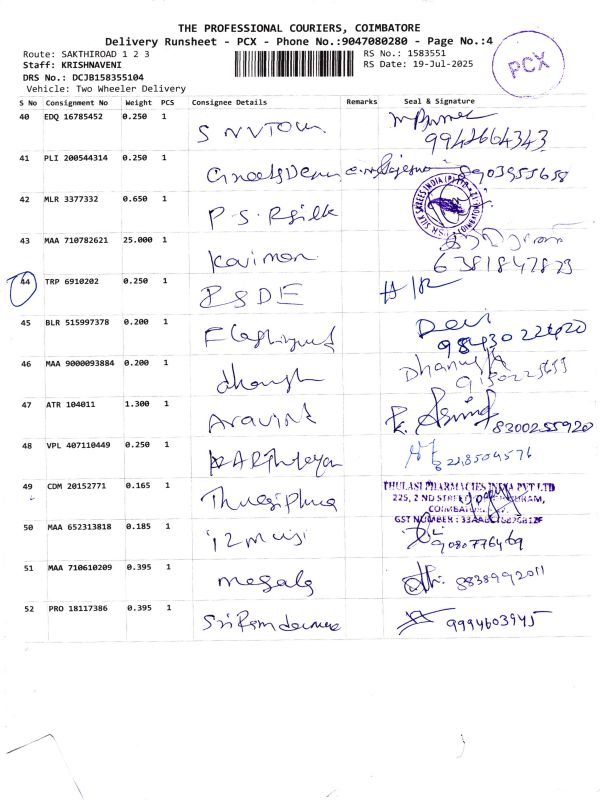 THE PROFESSIONAL COURIERS, COIMBATORE
Delivery Runsheet - PCX - Phone No.:9047080280 - Page No.:4
Route: SAKTHIROAD 1 2 3
RS No.: 1583551
Staff: KRISHNAVENI
RS Date: 19-Jul-2025
DRS No.: DCJB158355104
Vehicle: Two Wheeler Delivery
PCX
S No Consignment No Weight PCS Consignee Details Remarks Seal & Signature
40 EDQ 16785452 0.250 1 S NVTOUR
9942664343
41 PLI 200544314 0.250 1
42 MLR 3377332 0.650 1 P.S.R silk
43 MAA 710782621 25.000 1 Kaiman
6381847823
44 TRP 6910202 0.250 1 PSDE
45 BLR 515997378 0.200 1 Devi
9843022420
46 MAA 9000093884 0.200 1 Dhanush
47 ATR 104011 1.300 1 Aravind
8300255920
48 VPL 407110449 0.250 1 KARthikeyan
49 CDM 20152771 0.165 1
THULASI PHARMACIES INDIA PVT LTD
225, 2 ND STREET
COIMBATORE
GST NUMBER :
50 MAA 652313818 0.185 1
9080776469
51 MAA 710610209 0.395 1 megala
8838992011
52 PRO 18117386 0.395 1
9994603945